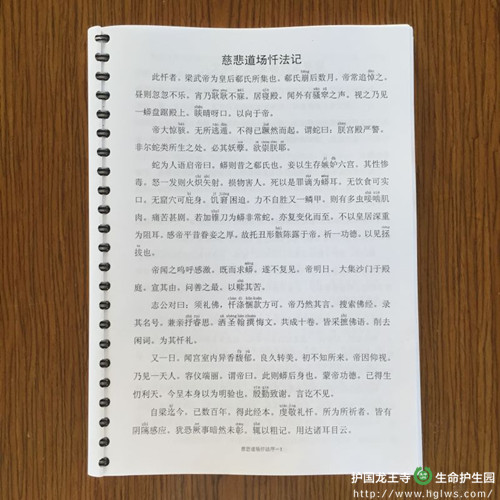 慈悲道场忏法记
此忏者，梁武帝为皇后郗氏所集也，郗氏崩后数月，帝常追悼之，
昼则忽忽不乐，宵乃耿耿不寐，居寝殿，闻外有骚窣之声，视之乃见
一蟒盘躩殿上，睒睛呀口，以向于帝。
帝大惊骇，无所逃遁，不得已蹶然而起，谓蛇曰：朕宫殿严警，
非尔蛇类所生之处，必其妖孽，欲祟朕耶。
蛇为人语启帝曰，蟒则昔之郗氏也，妾以生存嫉妒六宫，其性惨
毒，怒一发则火炽矢射，损物害人，死以是罪谪为蟒耳，无饮食可实
口，无窟穴可庇身，饥窘困迫，力不自胜又一鳞甲，则有多虫唼啮肌
肉，痛苦甚剧，若加锥刀为蟒非常蛇，亦复变化而至，不以皇居深重
为阻耳，感帝平昔眷妾之厚，故托丑形骸陈露于帝，祈一功德，以见拯
拔也。
帝闻之呜呼感激，既而求蟒，遂不复见，帝明日，大集沙门于殿
庭，宣其由，问善之最，以赎其苦。
志公对曰：须礼佛，忏涤悃款方可，帝乃然其言，搜索佛经，录
其名号，兼亲抒睿思，洒圣翰撰悔文，共成十卷，皆采摭佛语，削去
闲词，为其忏礼。
又一日，闻宫室内异香馥郁，良久转美，初不知所来，帝因仰视，
乃见一天人，容仪端丽，谓帝曰，此则蟒后身也，蒙帝功德，已得生
忉利天，今呈本身以为明验也，殷勤致谢，言讫不见。
自梁迄今，已数百年，得此经本，虔敬礼忏，所为所祈者，皆有
阴隲感应，犹恐厥事暗然未彰，辄以粗记，用达诸耳目云。
护国龙王寺 生命护生园
http://www.hglws.com